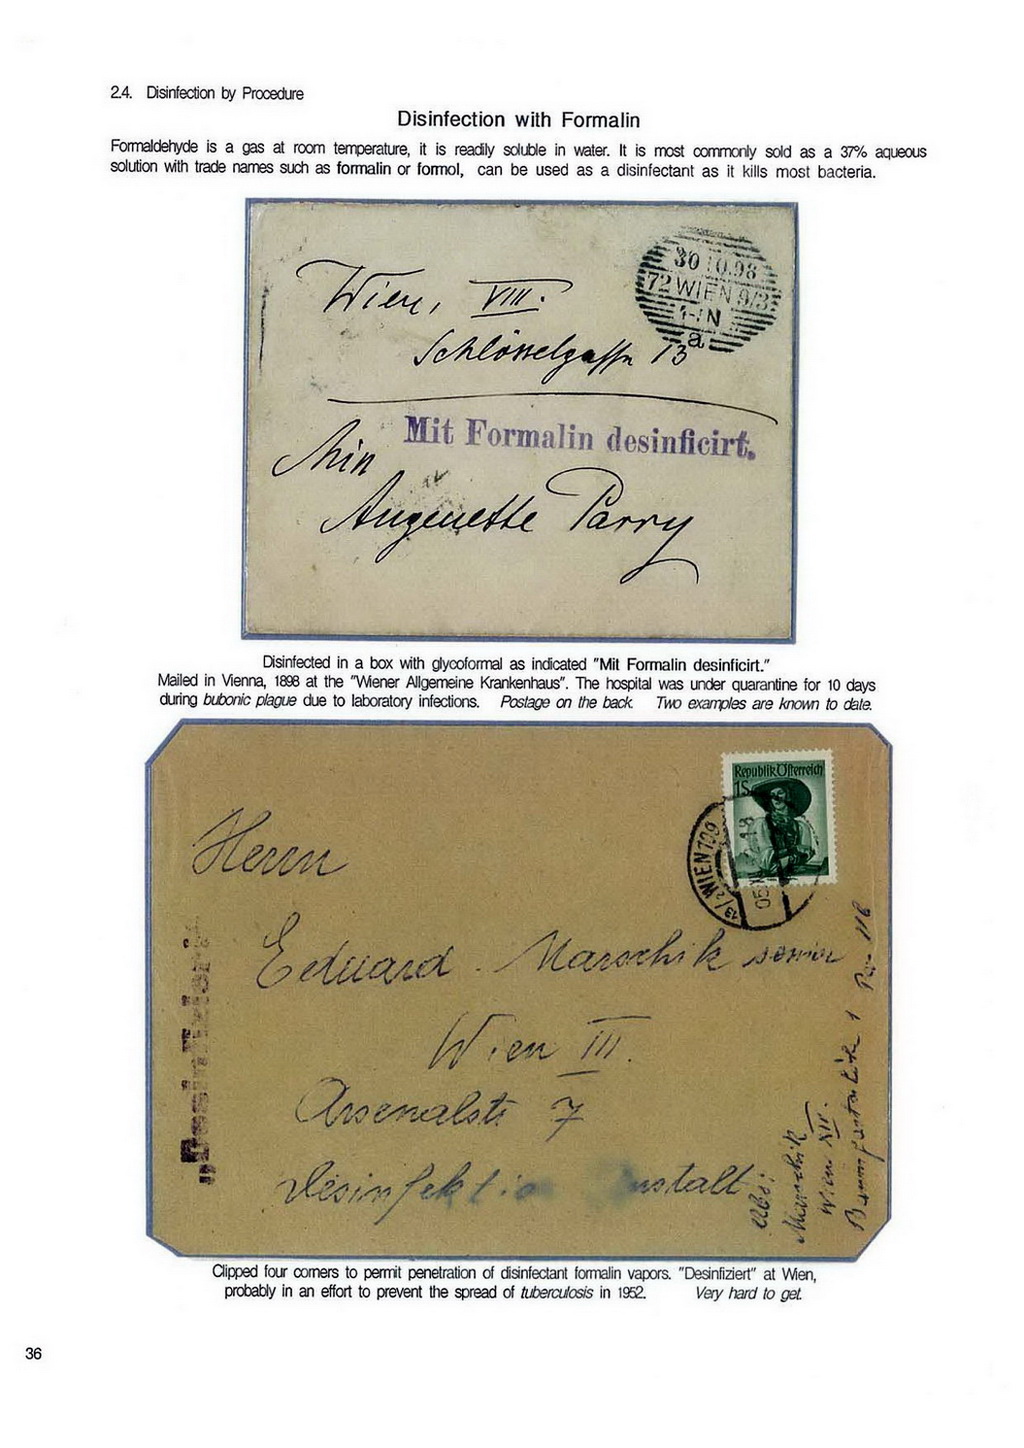 2.4. Disinfection by Procedure
Disinfection with Formalin
Formaldehyde is a gas at room temperature, it is readily soluble in water. It is most commonly sold as a 37% aqueous
solution with trade names such as formalin or formol, can be used as a disinfectant as it kills most bacteria.
30 10.98
72 WIEN 9/3
1-1N
a
Wien, VIII.
Schlösselgasse 13
Mit Formalin desinficirt.
Parry
Disinfected in a box with glycoformal as indicated "Mit Formalin desinficirt."
Mailed in Vienna, 1898 at the "Wiener Allgemeine Krankenhaus". The hospital was under quarantine for 10 days
during bubonic plague due to laboratory infections. Postage on the back Two examples are known to date.
Republik Österreich
1S
WIEN 109
Herrn
Eduard Marschik senior
Wien III.
Arsenalstr 7
Desinfektio nstalt
"Desinfiziert"
Abs:
Marschik
Wien XII.
1
Clipped four corners to permit penetration of disinfectant formalin vapors. "Desinfiziert" at Wien,
probably in an effort to prevent the spread of tuberculosis in 1952. Very hard to get.
36